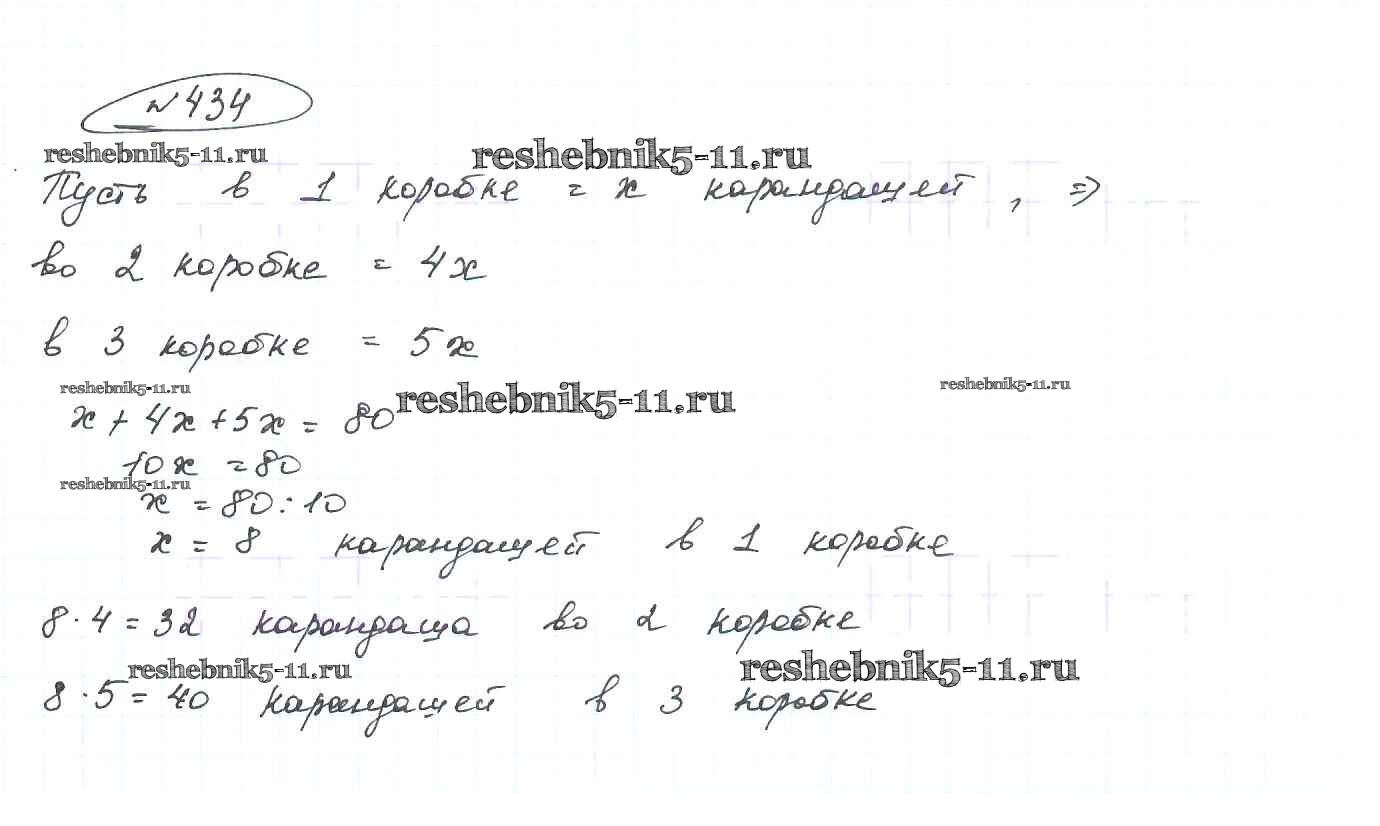 №434
reshebnik5-11.ru reshebnik5-11.ru
Пусть в 1 коробке = x карандашей, =>
во 2 коробке = 4x
в 3 коробке = 5x
reshebnik5-11.ru reshebnik5-11.ru reshebnik5-11.ru
x + 4x + 5x = 80
10x = 80
reshebnik5-11.ru
x = 80 : 10
x = 8 карандашей в 1 коробке
8 · 4 = 32 карандаша во 2 коробке
reshebnik5-11.ru reshebnik5-11.ru
8 · 5 = 40 карандашей в 3 коробке